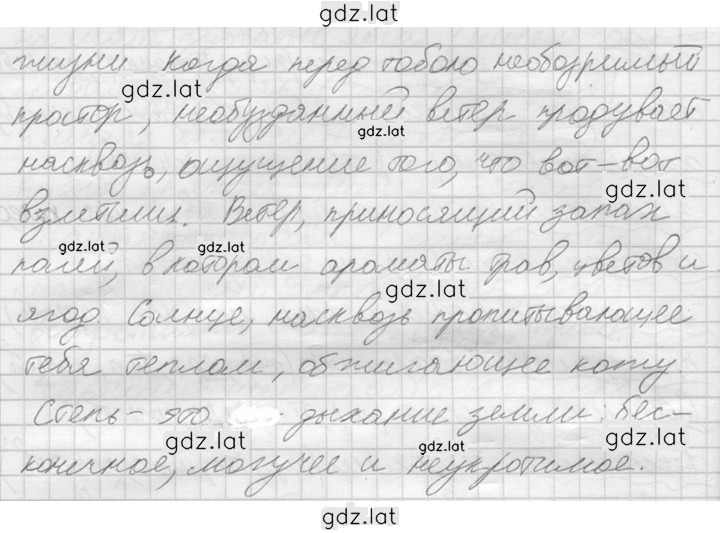 gdz.lat
жизни когда перед тобою необозримый
gdz.lat
простор, необузданный ветер продувает
gdz.lat
насквозь, ощущение того, что вот-вот
gdz.lat
взлетишь. Ветер, приносящий запах
gdz.lat gdz.lat
полей, в котором ароматы трав, цветов и
gdz.lat
ягод Солнце, насквозь пропитывающее
тебя теплом, обжигающее кожу.
Степь - это дыхание земли: бес-
gdz.lat gdz.lat gdz.lat
конечное, могучее и неукротимое.
gdz.lat